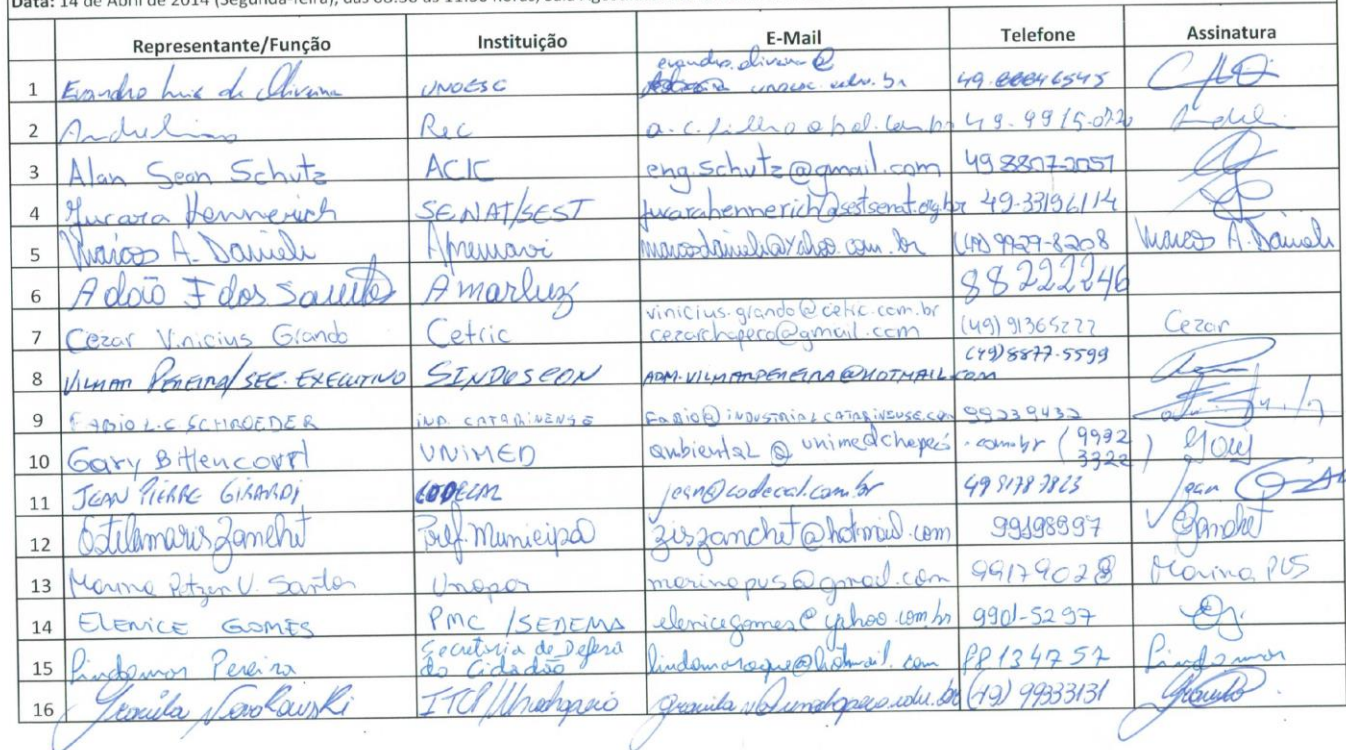 Data: 14 de Abril de 2014 (Segunda-feira), das 08:30 às 11:30 horas,
Representante/Função Instituição E-Mail Telefone Assinatura
1 Evandro Luiz de Oliveira UNOESC evandro.oliveira@ unoesc.edu.br
2 Rec 49.9915-0720
3 Alan Sean Schutz ACIC eng.schutz@gmail.com 49 8807-2051
4 Juçara Hennerich SENAT/SEST jucarahennerich@sestsenat.org.br 49-33196114
5 Marcos A. Danieli Apremavi marcosdanieli@yahoo.com.br (49) 9929-8208 Marcos A. Danieli
6 Adão F dos Santos Amarluz 88222246
7 Cezar Vinicius Grando Cetric vinicius.grando@cetric.com.br cezarchapeco@gmail.com (49) 91365222 Cezar
8 VILMAR PEREIRA/SEC. EXECUTIVO SINDUSCON ADM.VILMARPEREIRA@HOTMAIL.COM (49) 8877-5599
9 FABIO L.C SCHROEDER IND. CATARINENSE FABIO@INDUSTRIALCATARINENSE.COM 99239432
10 Gary Bittencourt UNIMED ambiental@unimedchapeco.com.br (9992 3322)
11 JEAN PIERRE GIRARDI CODECAL jean@codecal.com.br Jean
12 Estelamaris Zanchet Pref. Municipal ziszanchet@hotmail.com 99198997 Zanchet
13 Marina Santos Unopar marinapvs@gmail.com 99179028 Marina PVS
14 ELENICE GOMES PMC /SEDEMA elenicegomes@yahoo.com.br 9901-5297
15 Lindomar Pereira Secretaria de Defesa do Cidadão 88134757 Lindomar
16 ITCP/Unochapecó (49) 99333131